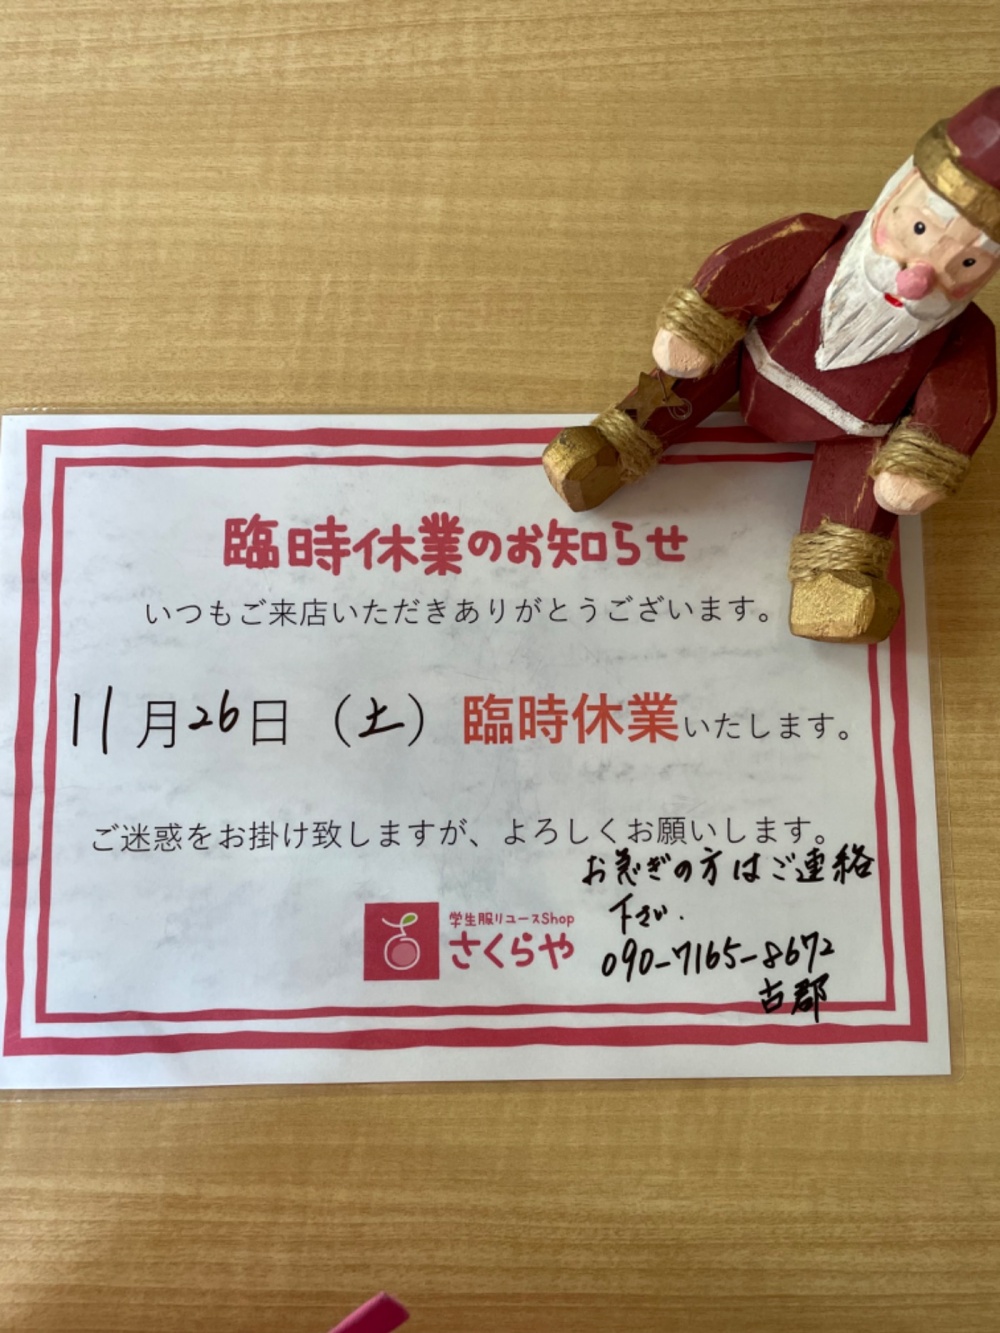 臨時休業のお知らせ
いつもご来店いただきありがとうございます。
11月26日（土）臨時休業いたします。
ご迷惑をお掛け致しますが、よろしくお願いします。
お急ぎの方はご連絡
下さい.
090-7165-8672
古郡
学生服リユースShop
さくらや